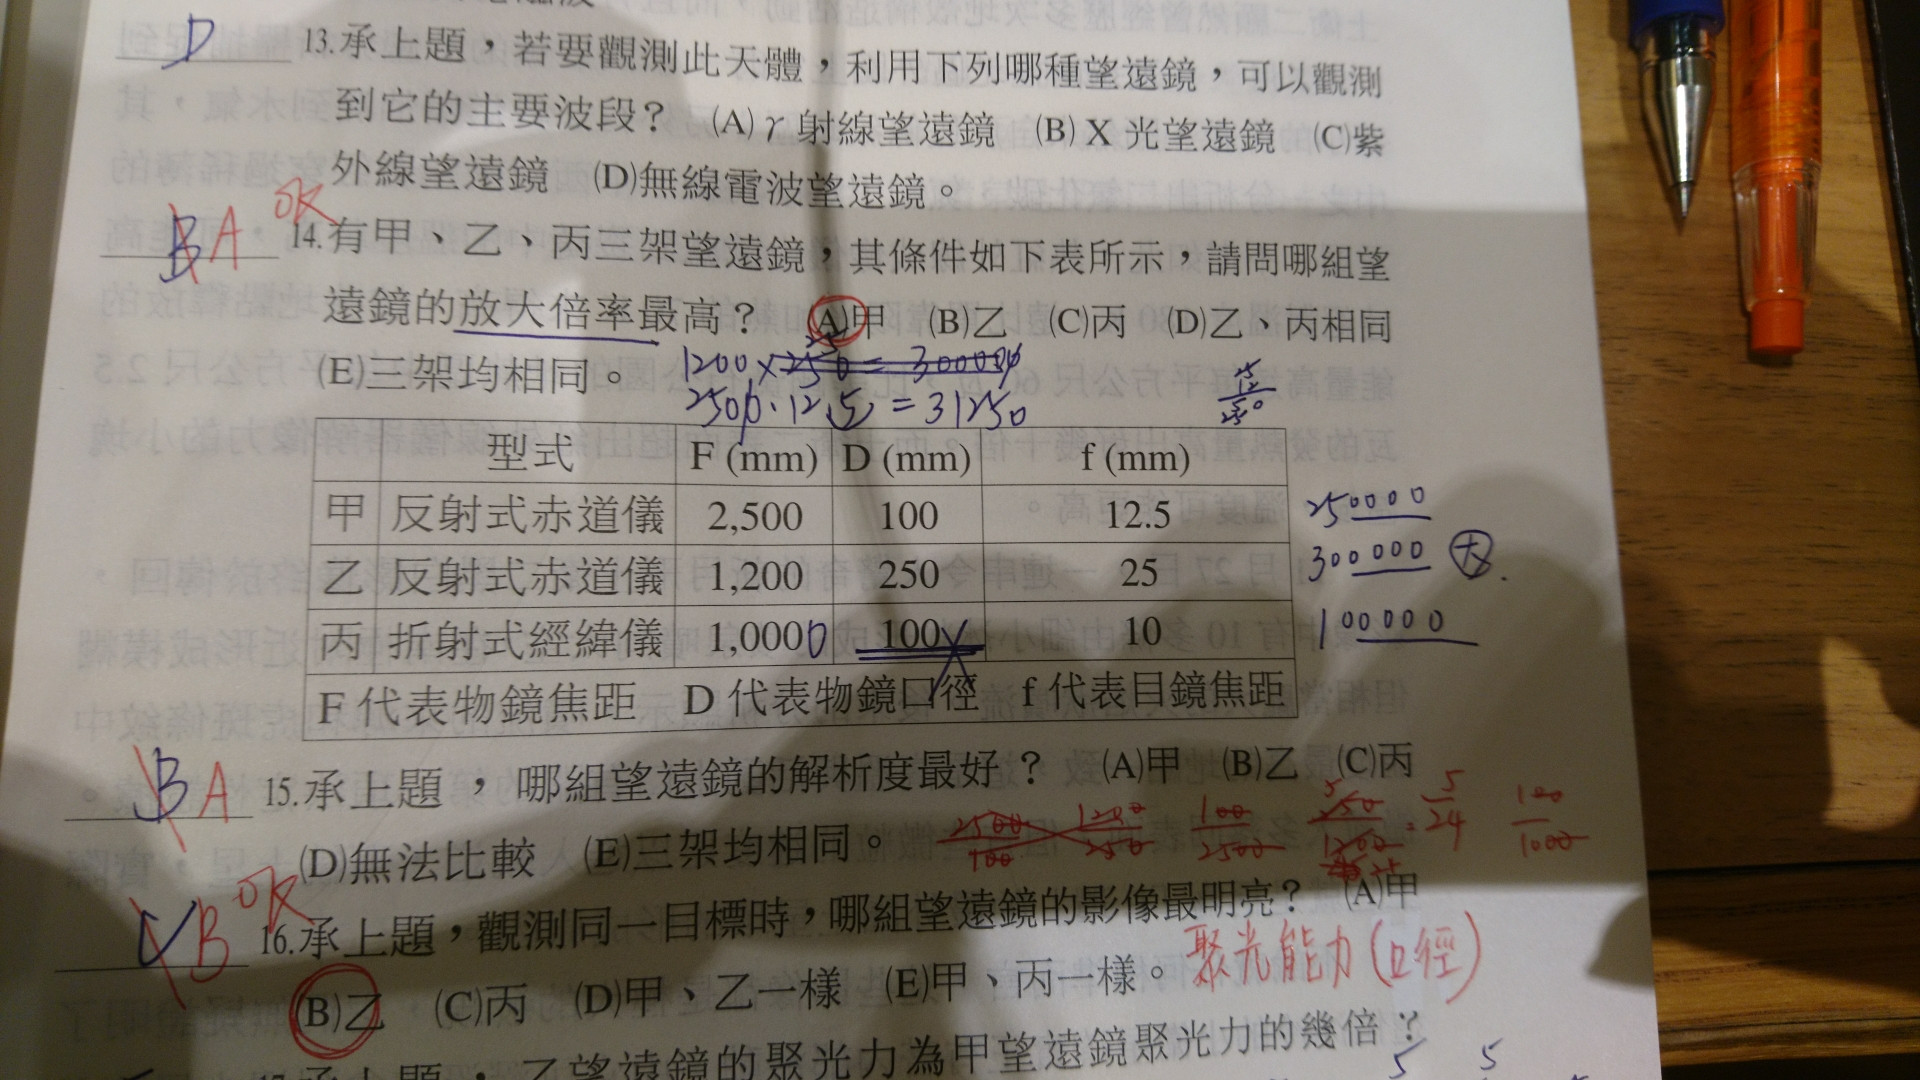 D 13.承上題,若要觀測此天體,利用下列哪種望遠鏡,可以觀測
到它的主要波段? (A)γ射線望遠鏡 (B)X光望遠鏡 (C)紫
外線望遠鏡 (D)無線電波望遠鏡。
OK
B A 14.有甲、乙、丙三架望遠鏡,其條件如下表所示,請問哪組望
遠鏡的放大倍率最高? (A)甲 (B)乙 (C)丙 (D)乙、丙相同
(E)三架均相同。 1200×250=300000
2500·12.5=31250
型式 F(mm) D(mm) f(mm)
甲 反射式赤道儀 2,500 100 12.5 250000
乙 反射式赤道儀 1,200 250 25 300000 大
丙 折射式經緯儀 1,000 100 10 100000
F代表物鏡焦距 D代表物鏡口徑 f代表目鏡焦距
B A 15.承上題,哪組望遠鏡的解析度最好? (A)甲 (B)乙 (C)丙
(D)無法比較 (E)三架均相同。 2500/100 1200/250 100/2500 250/1200 = 5/24 100/1000
OK
B 16.承上題,觀測同一目標時,哪組望遠鏡的影像最明亮? (A)甲
(B)乙 (C)丙 (D)甲、乙一樣 (E)甲、丙一樣。 聚光能力(口徑)
17.承上題,乙望遠鏡的聚光力為甲望遠鏡聚光力的幾倍?
5 5